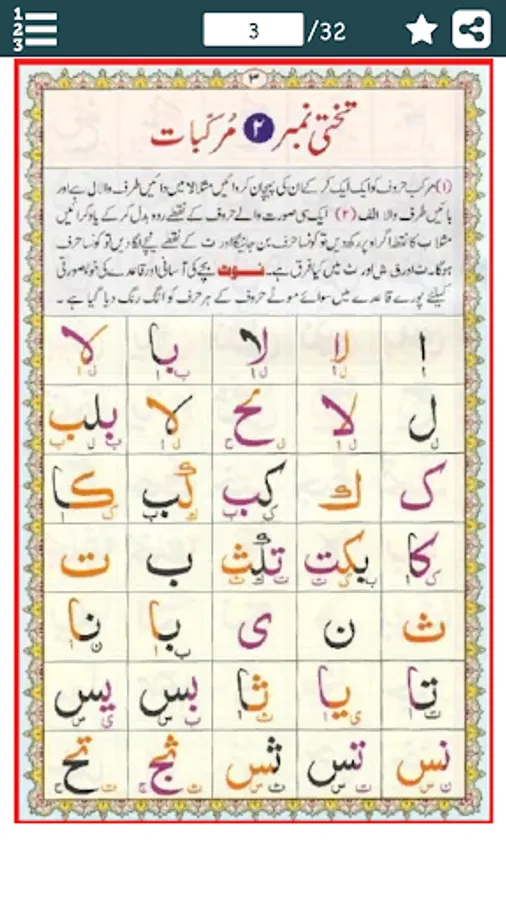 1 2 3
3 /32
۳
تختی نمبر ۲ مُرکّبات
(۱) مرکب حروف کو ایک ایک کر کے ان کی پہچان کروائیں مثلا لا میں دائیں طرف والا ل ہے اور
بائیں طرف والا الف (۲) ایک ہی صورت والے حروف کے نقطے ردو بدل کر کے یاد کرائیں
مثلا ب کا نقطہ اگر اوپر رکھ دیں تو کونسا حرف بن جائیگا اور ت کے نقطے نیچے لگا دیں تو کونسا حرف
ہوگا۔ ث اور ش اور ث میں کیا فرق ہے۔ نوٹ بچے کی آسانی اور قاعدے کی خوبصورتی
کیلئے پورے قاعدے میں سوائے موٹے حروف کے ہر حرف کو الگ رنگ دیا گیا ہے۔
ا لا لا با لا
ل ا ل ا ب ا ل ا
ل لا لح لا بلب
ل ا ل ح ل ا ب ل ب
ک ك کب لب کا
ک ب ل ب ک ا
کا بکت تلث ب ت
ک ا ب ک ت ت ل ث
ث ن ی با نا
ب ا ن ا
تا یا ثا بس یس
ت ا ی ا ث ا ب س ی س
نس تس ثس ثج تح
ن س ت س ث س ث ج ت ح